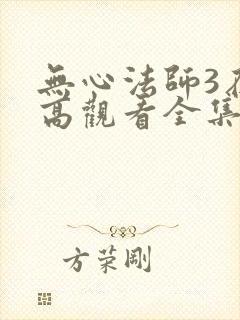 無心法師3
高觀看全集
方荣剛